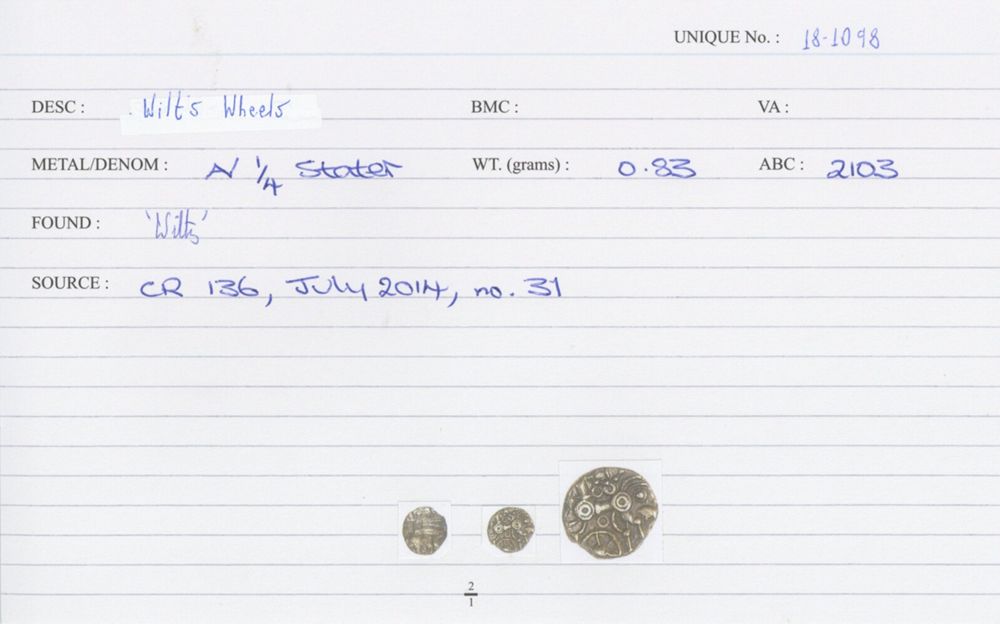 UNIQUE No. : 18-1098
DESC : Wilts Wheels BMC : VA :
METAL/DENOM : A/ 1/4 Stater WT. (grams) : 0.83 ABC : 2103
FOUND : 'Wilts'
SOURCE : CR 136, July 2014, no. 31
2
1